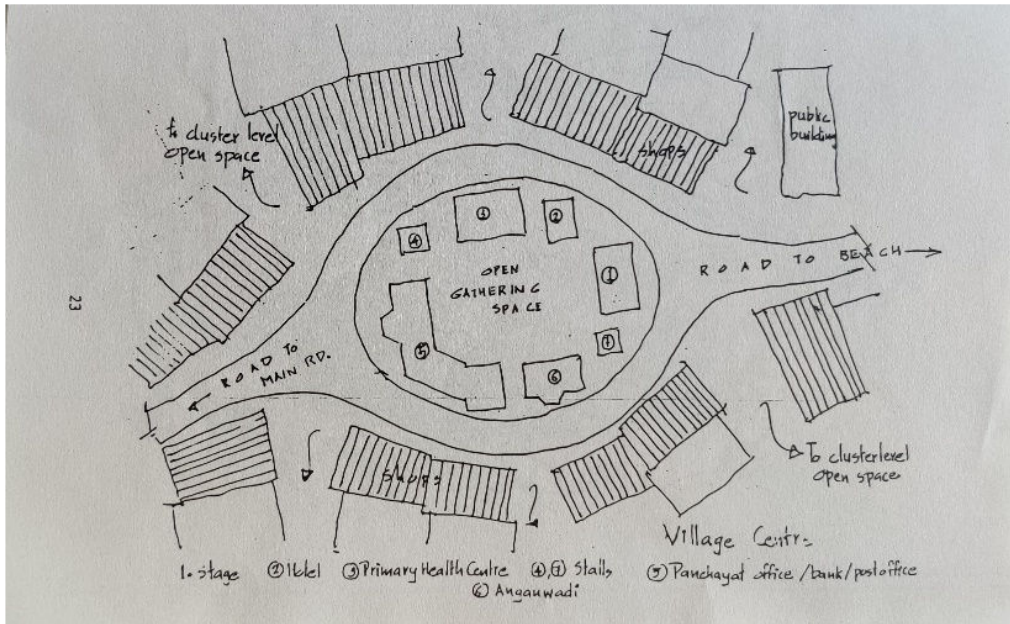 to cluster level
open space
public
building
shops
③
②
④
①
OPEN
GATHERING
SPACE
ROAD TO BEACH
23
⑦
⑤
⑥
ROAD TO
MAIN RD.
shops
To cluster level
open space
Village Centre
1. Stage ② Hotel ③ Primary Health Centre ④,⑦ Stalls ⑤ Panchayat office/bank/postoffice
⑥ Anganwadi